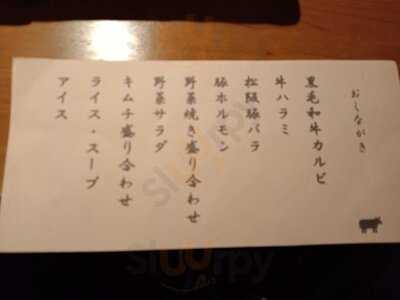 おしながき
黒毛和牛カルビ
牛ハラミ
松阪豚バラ
豚ホルモン
野菜焼き盛り合わせ
野菜サラダ
キムチ盛り合わせ
ライス・スープ
アイス
sluurpy
sluurpy